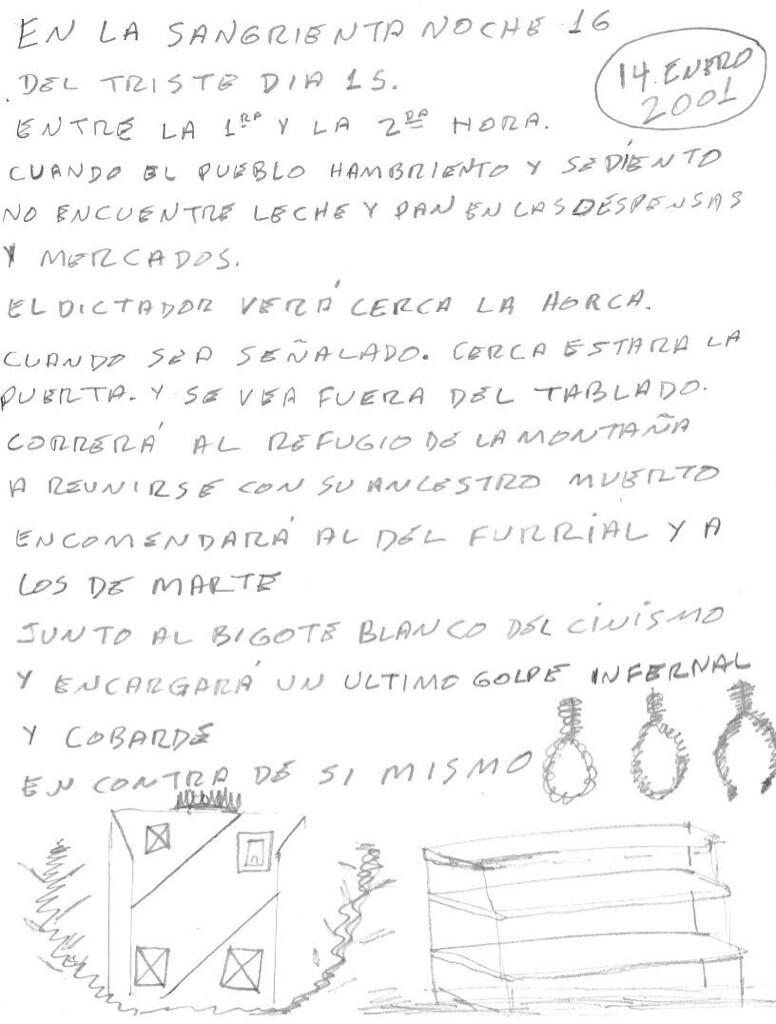 EN LA SANGRIENTA NOCHE 16
DEL TRISTE DIA 15.
14. ENERO
2001
ENTRE LA 1RA Y LA 2DA HORA.
CUANDO EL PUEBLO HAMBRIENTO Y SEDIENTO
NO ENCUENTRE LECHE Y PAN EN LAS DESPENSAS
Y MERCADOS.
EL DICTADOR VERÁ CERCA LA HORCA.
CUANDO SEA SEÑALADO. CERCA ESTARA LA
PUERTA. Y SE VEA FUERA DEL TABLADO.
CORRERÁ AL REFUGIO DE LA MONTAÑA
A REUNIRSE CON SU ANCESTRO MUERTO
ENCOMENDARÁ AL DEL FURRIAL Y A
LOS DE MARTE
JUNTO AL BIGOTE BLANCO DEL CINISMO
Y ENCARGARÁ UN ULTIMO GOLPE INFERNAL
Y COBARDE
EN CONTRA DE SI MISMO